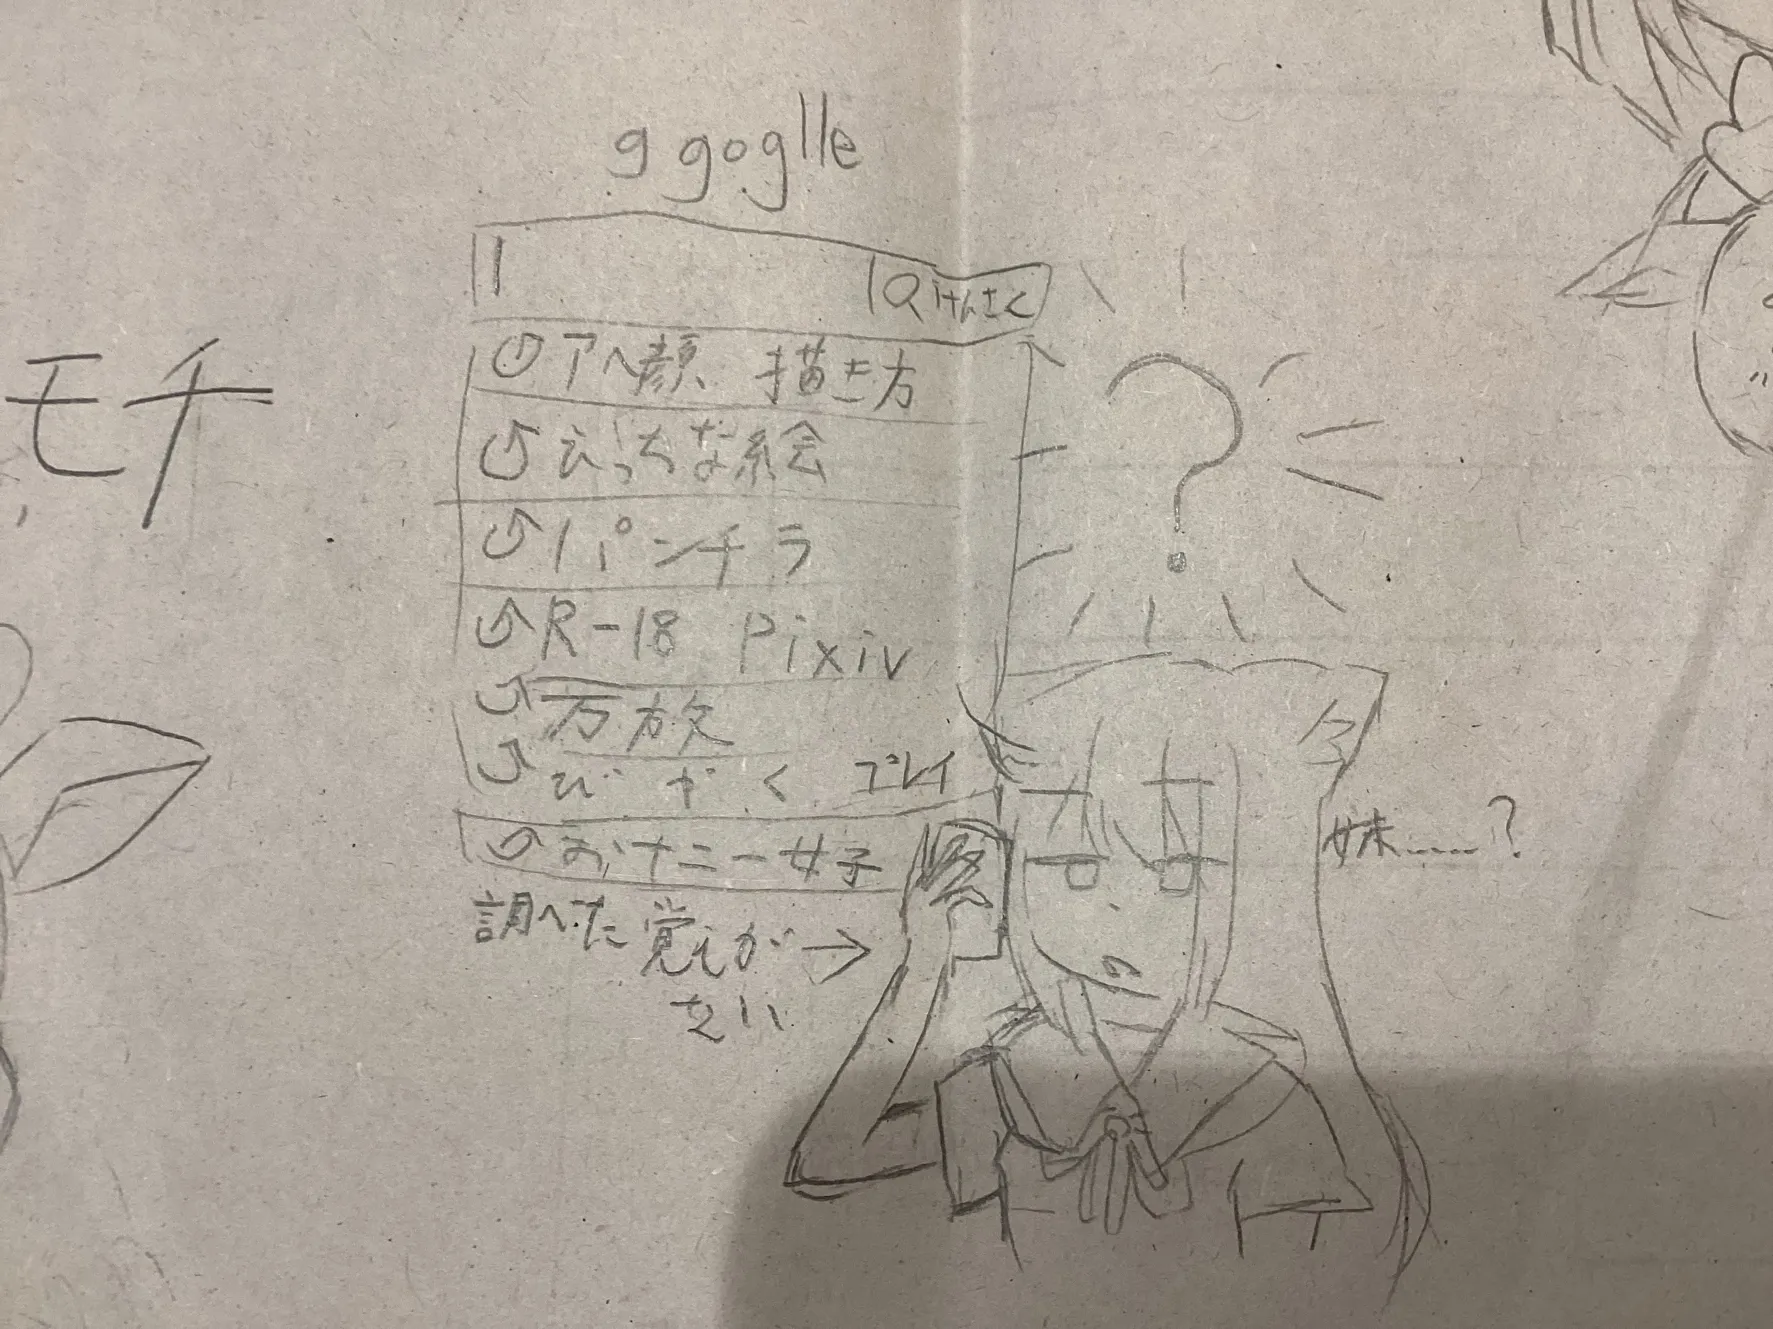 ggoglle
Qけんさく
アヘ顔 描き方
えっちな絵
パンチラ
R-18 Pixiv
びやく プレイ
おナニー女子
調べた覚えが→
ない
妹……?
モチ